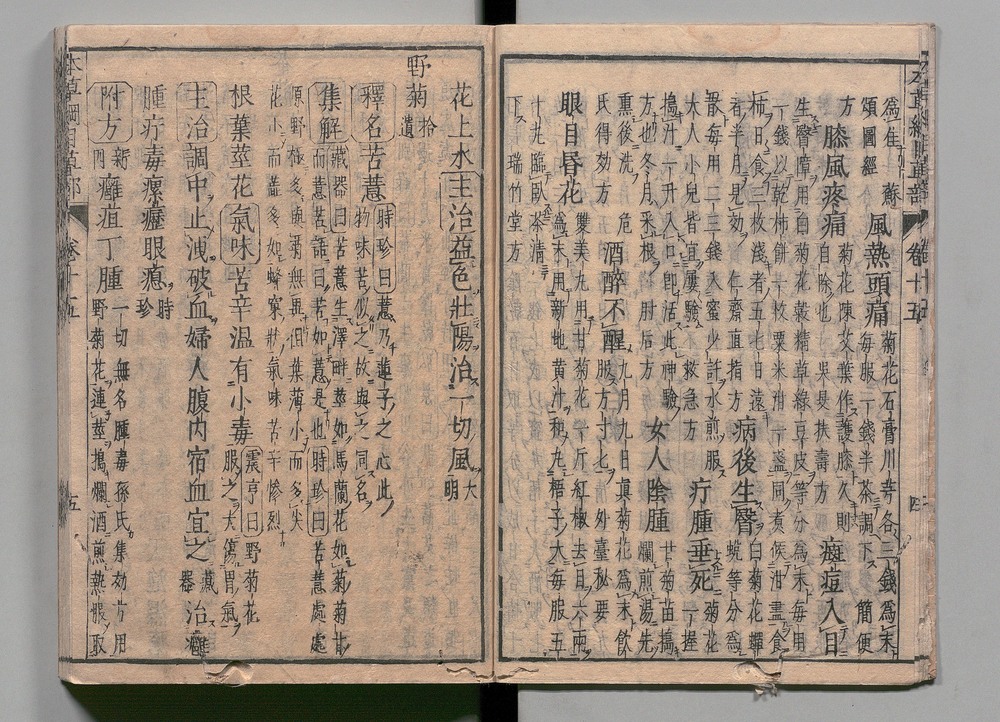 本草綱目草部 卷十五 四
為佳 蘇
頌圖經
風熱頭痛
菊花石膏川芎各三錢為末
每服一錢半茶調下 簡便
方
膝風疼痛
菊花陳艾葉作護膝久則
自除也 吳旻扶壽方
癍痘入目
生翳障用白菊花穀精草綠豆皮等分為末每用
一錢以乾柿餅一枚粟米泔一盞同煮候泔盡食
柿日食三枚淺者五七日遠
者半月見効 仁齋直指方
病後生翳
白菊花蟬
蛻等分為
散每用二三錢入蜜少許水煎服
大人小兒皆宜屢驗 救急方
疔腫垂死
菊花
一握
搗汁一升入口即活此神驗
方也冬月采根 肘后方
女人陰腫
甘菊苗搗
爛煎湯先
熏後洗 危
氏得効方
酒醉不醒
九月九日真菊花為末飲
服方寸匕 外臺秘要
眼目昏花
雙美丸用甘菊花一斤紅椒去目六兩
為末用新地黃汁和丸梧子大每服五
十丸臨臥茶清
下 瑞竹堂方
花上水 主治 益色壯陽治一切風 大明
野菊 拾遺
釋名 苦薏
時珍曰薏乃蓮子之心此
物味苦似之故與之同名
集解
藏器曰苦薏生澤畔莖如馬蘭花如菊菊甘
而薏苦語曰苦如薏是也時珍曰苦薏處處
原野極多與菊無異但葉薄小而多尖
花小而蕊多如蜂窠狀氣味苦辛慘烈
根葉莖花 氣味 苦辛温有小毒
震亨曰野菊花
服之大傷胃氣
主治 調中止洩破血婦人腹内宿血宜之 藏器 治癰
腫疔毒瘰癧眼瘜 時珍
附方 新
癰疽丁腫
一切無名腫毒孫氏集効方用
野菊花連莖搗爛酒煎熱服取
本草綱目草部 卷十五 五